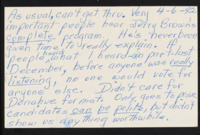 As usual, can't get thru. Very 4-6-92
important people hear Jerry Brown's
complete program. He's never been
given time to really explain. If
people what I heard on pre-last
December, before anyone was really
listening, no one would vote for
anyone else. Didn't care for
Donahue format. Only goes to prove
candidates can be polite, but didn't
show us anything worthwhile.